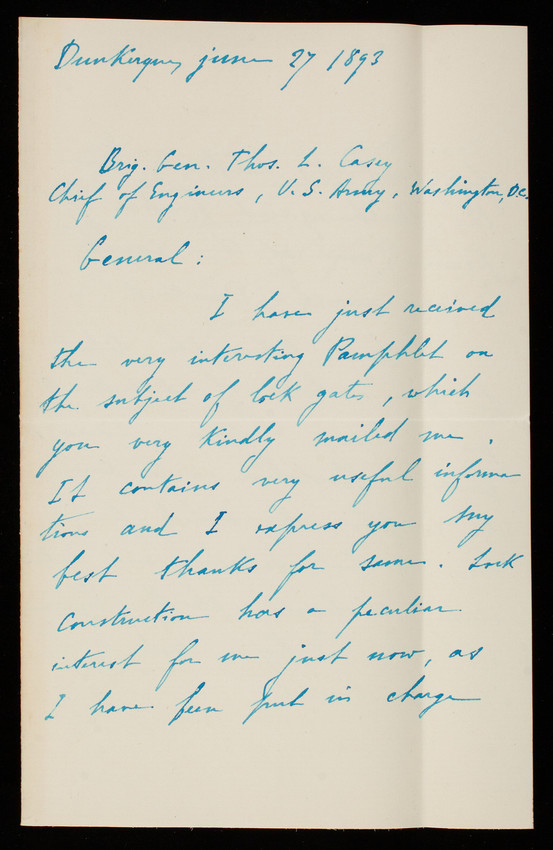 Dunkerque, june 27 1893
Brig. Gen. Thos. L. Casey
Chief of Engineers, U. S. Army, Washington, D.C.
General:
I have just received
the very interesting Pamphlet on
the subject of lock gates, which
you very kindly mailed me.
It contains very useful informa
tions and I express you my
best thanks for same. Lock
construction has a peculiar
interest for me just now, as
I have been put in charge